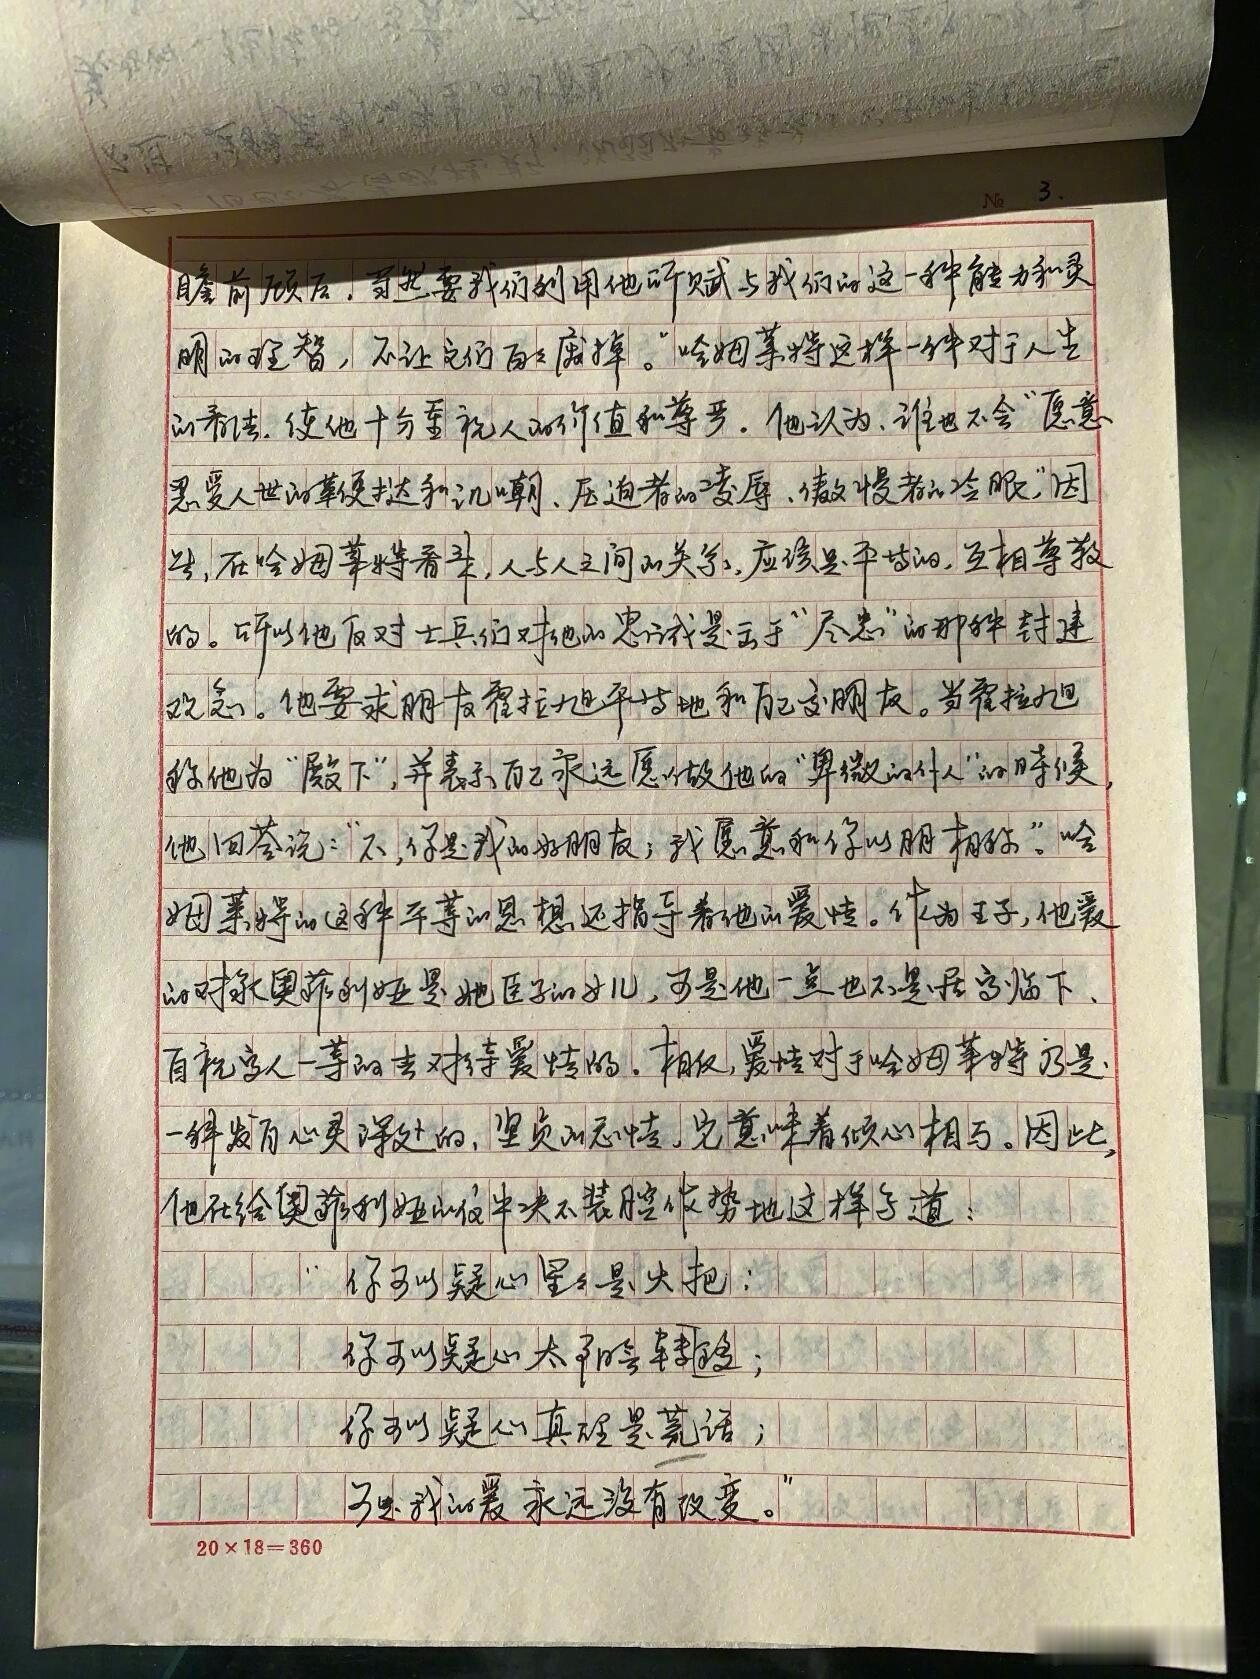 № 3.
瞻前顾后，当然要我们利用他所赋与我们的这一种能力和灵
明的理智，不让它们白白废掉。”哈姆莱特这样一种对于人生
的看法，使他十分重视人的价值和尊严。他认为，谁也不会“愿意
忍受人世的鞭挞和讥嘲、压迫者的凌辱、傲慢者的冷眼”，因
此，在哈姆莱特看来，人与人之间的关系，应该是平等的，互相尊敬
的。所以他反对士兵们对他的忠诚是出于“尽忠”的那种封建
观念。他要求朋友霍拉旭平等地和自己交朋友。当霍拉旭
称他为“殿下”，并表示自己永远愿以做他的“卑微的仆人”的时候，
他回答说：“不，你是我的好朋友；我愿意和你以朋相称”。哈
姆莱特的这种平等的思想还指导着他的爱情。作为王子，他爱
的对象奥菲利娅是她臣子的女儿，可是他一点也不是居高临下、
自视高人一等的去对待爱情的。相反，爱情对于哈姆莱特乃是
一种发自心灵深处的，坚贞的恋情，它意味着倾心相与。因此，
他在给奥菲利娅的信中决不装腔作势地这样写道：
“你可以疑心星星是火把；
你可以疑心太阳会转移；
你可以疑心真理是荒话；
可是我的爱永远没有改变。”
20×18=360